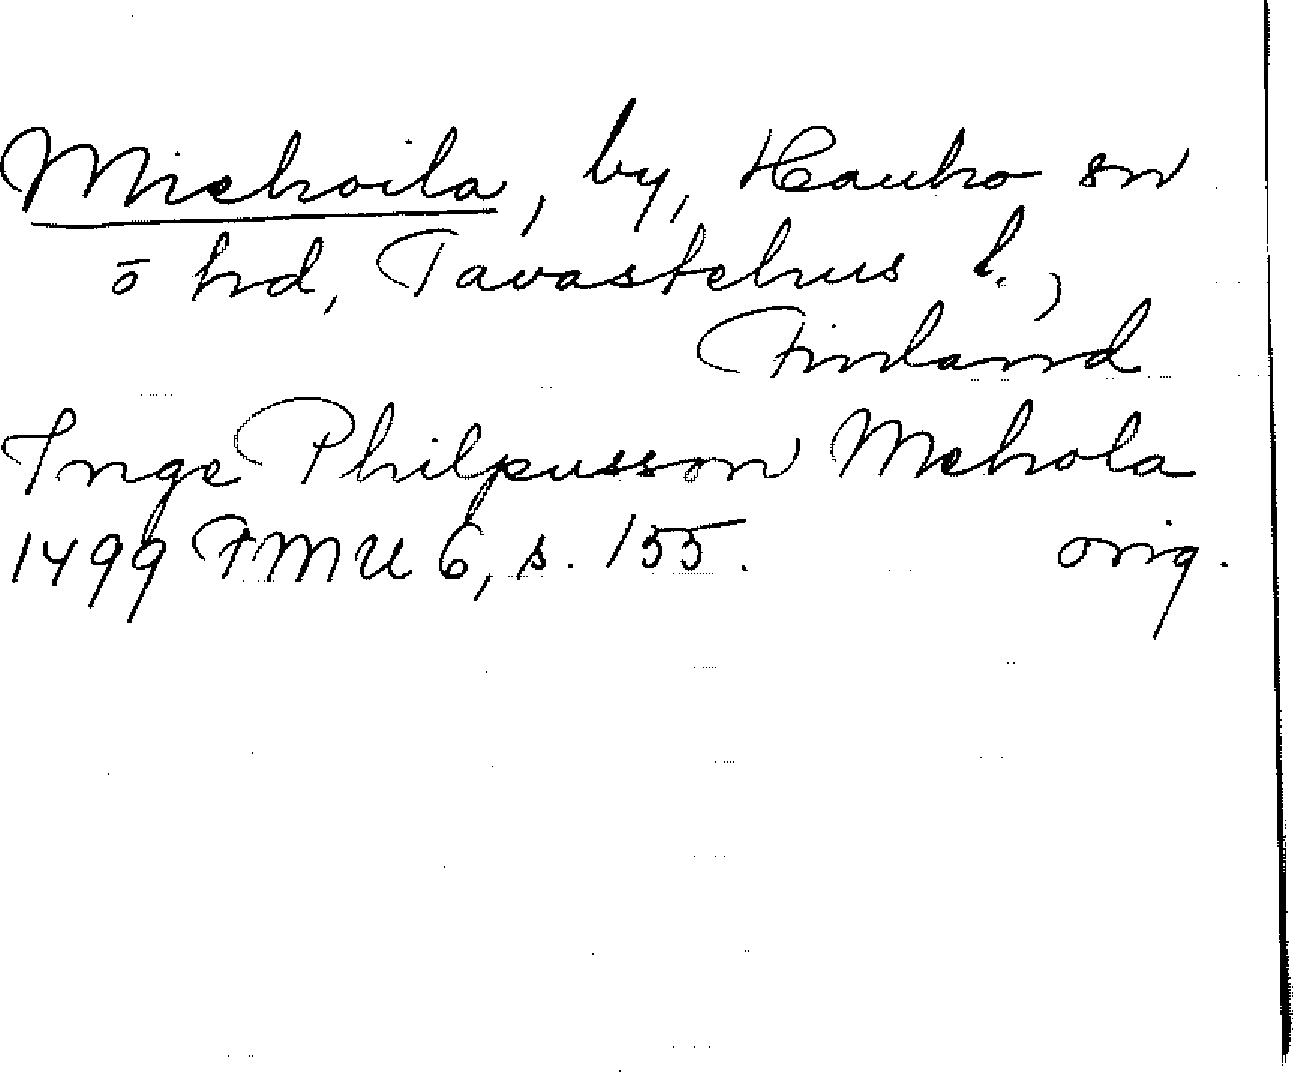 Miehoila, by, Hauho sn
o hd, Tavastehus l.,
Finland
Inge Philpusson Mehola
1499 FMU 6, s. 155. orig.